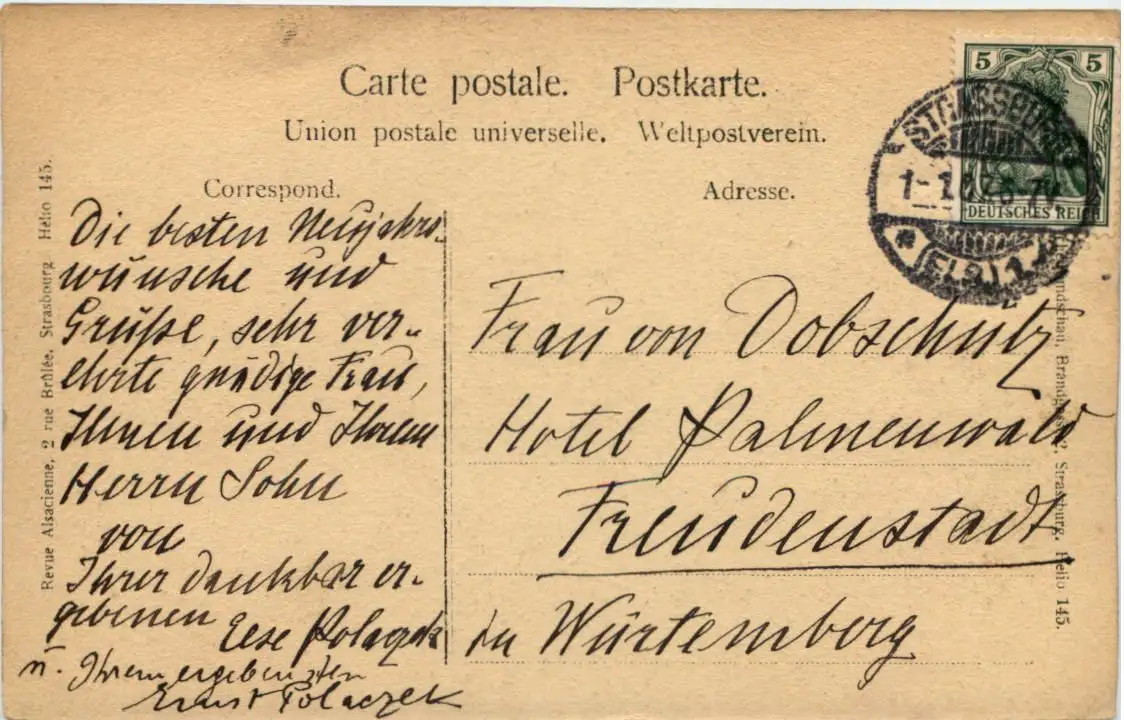 Carte postale. Postkarte.
Union postale universelle. Weltpostverein.
Correspond.
Adresse.
5 5
DEUTSCHES REICH
STRASSBURG
1-1.07.
(ELS.) 1
Die besten Neujahrs-
wünsche und
Grüße, sehr ver-
ehrte gnädige Frau,
Ihnen und Ihrem
Herrn Sohn
von
Ihrer dankbar er-
gebenen
Else Polaczek
u. Ihrem ergebensten
Ernst Polaczek
Frau von Dobschütz
Hotel Palmenwald
Freudenstadt
in Würtemberg
Revue Alsacienne, 2 rue Brûlée, Strasbourg Hélio 145.
Strassburg. Helio 145.